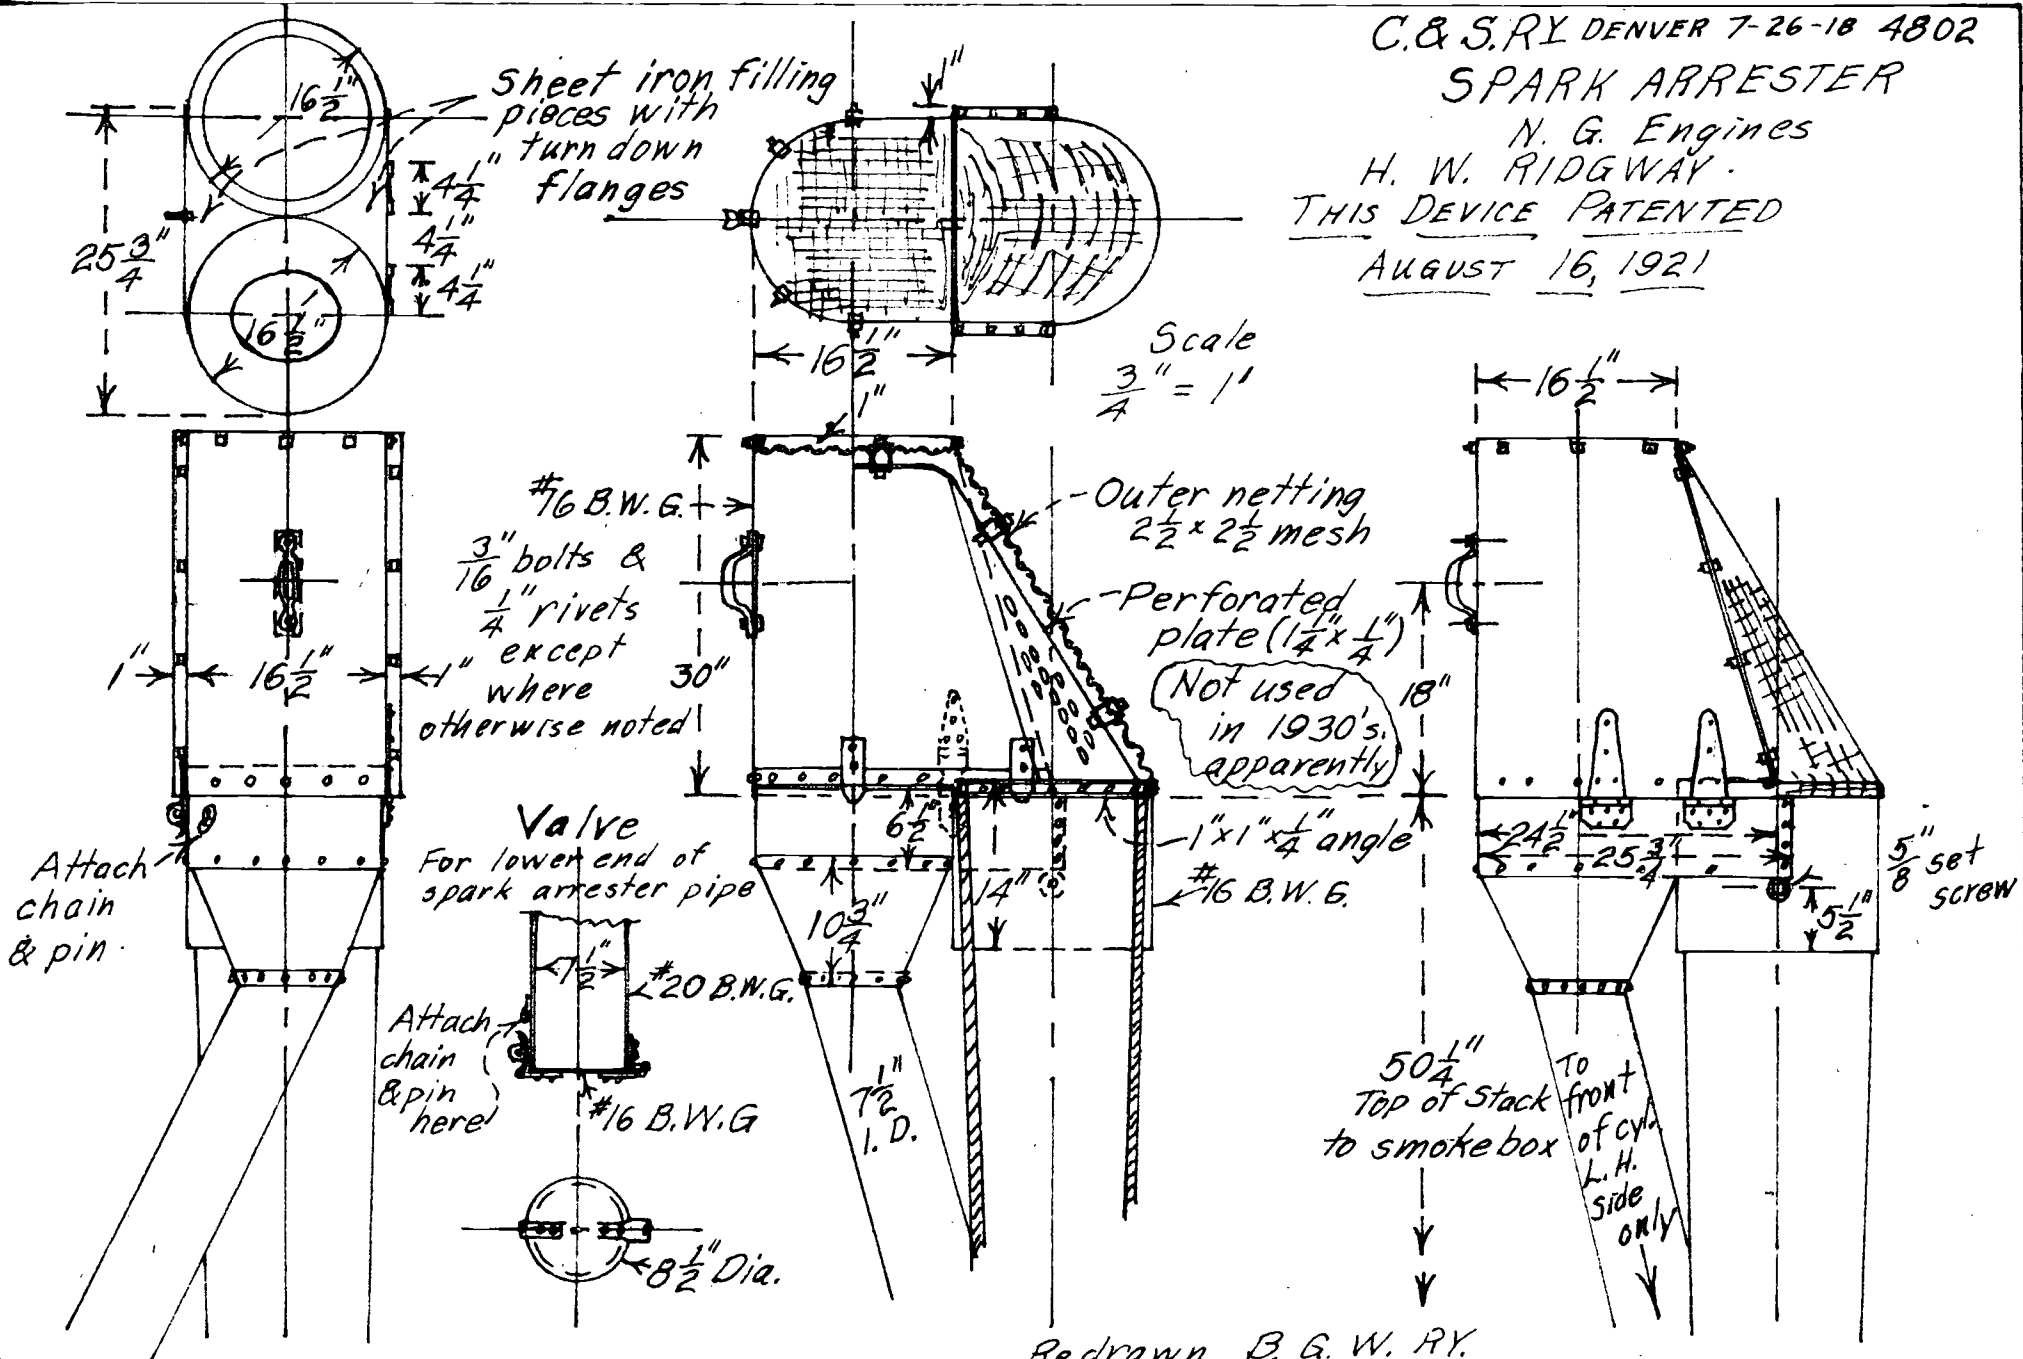 C. & S. RY DENVER 7-26-18 4802
SPARK ARRESTER
N. G. Engines
H. W. RIDGWAY.
THIS DEVICE PATENTED
AUGUST 16, 1921
16 1/2"
Sheet iron filling
pieces with
turn down
flanges
4 1/4"
4 1/4"
4 1/4"
25 3/4"
16 1/2"
1"
16 1/2"
Scale
3/4" = 1'
1"
16 1/2"
#16 B.W.G.
3/16" bolts &
1/4" rivets
except
where
otherwise noted
Outer netting
2 1/2 x 2 1/2 mesh
Perforated
plate (1 1/4" x 1/4")
Not used
in 1930's.
apparently
1"
16 1/2"
1"
30"
18"
Attach
chain
& pin.
Valve
For lower end of
spark arrester pipe
7 1/2"
#20 B.W.G.
Attach
chain
& pin
here
#16 B.W.G
8 1/2" Dia.
6 1/2"
14"
10 3/4"
1" x 1" x 1/4" angle
#16 B.W.G.
7 1/2"
I. D.
24 1/2"
25 3/4"
5/8" set
screw
5 1/2"
50 1/4"
Top of Stack
to smoke box
To
front
of cyl.
L.H.
side
only
Redrawn B. G. W. RY.